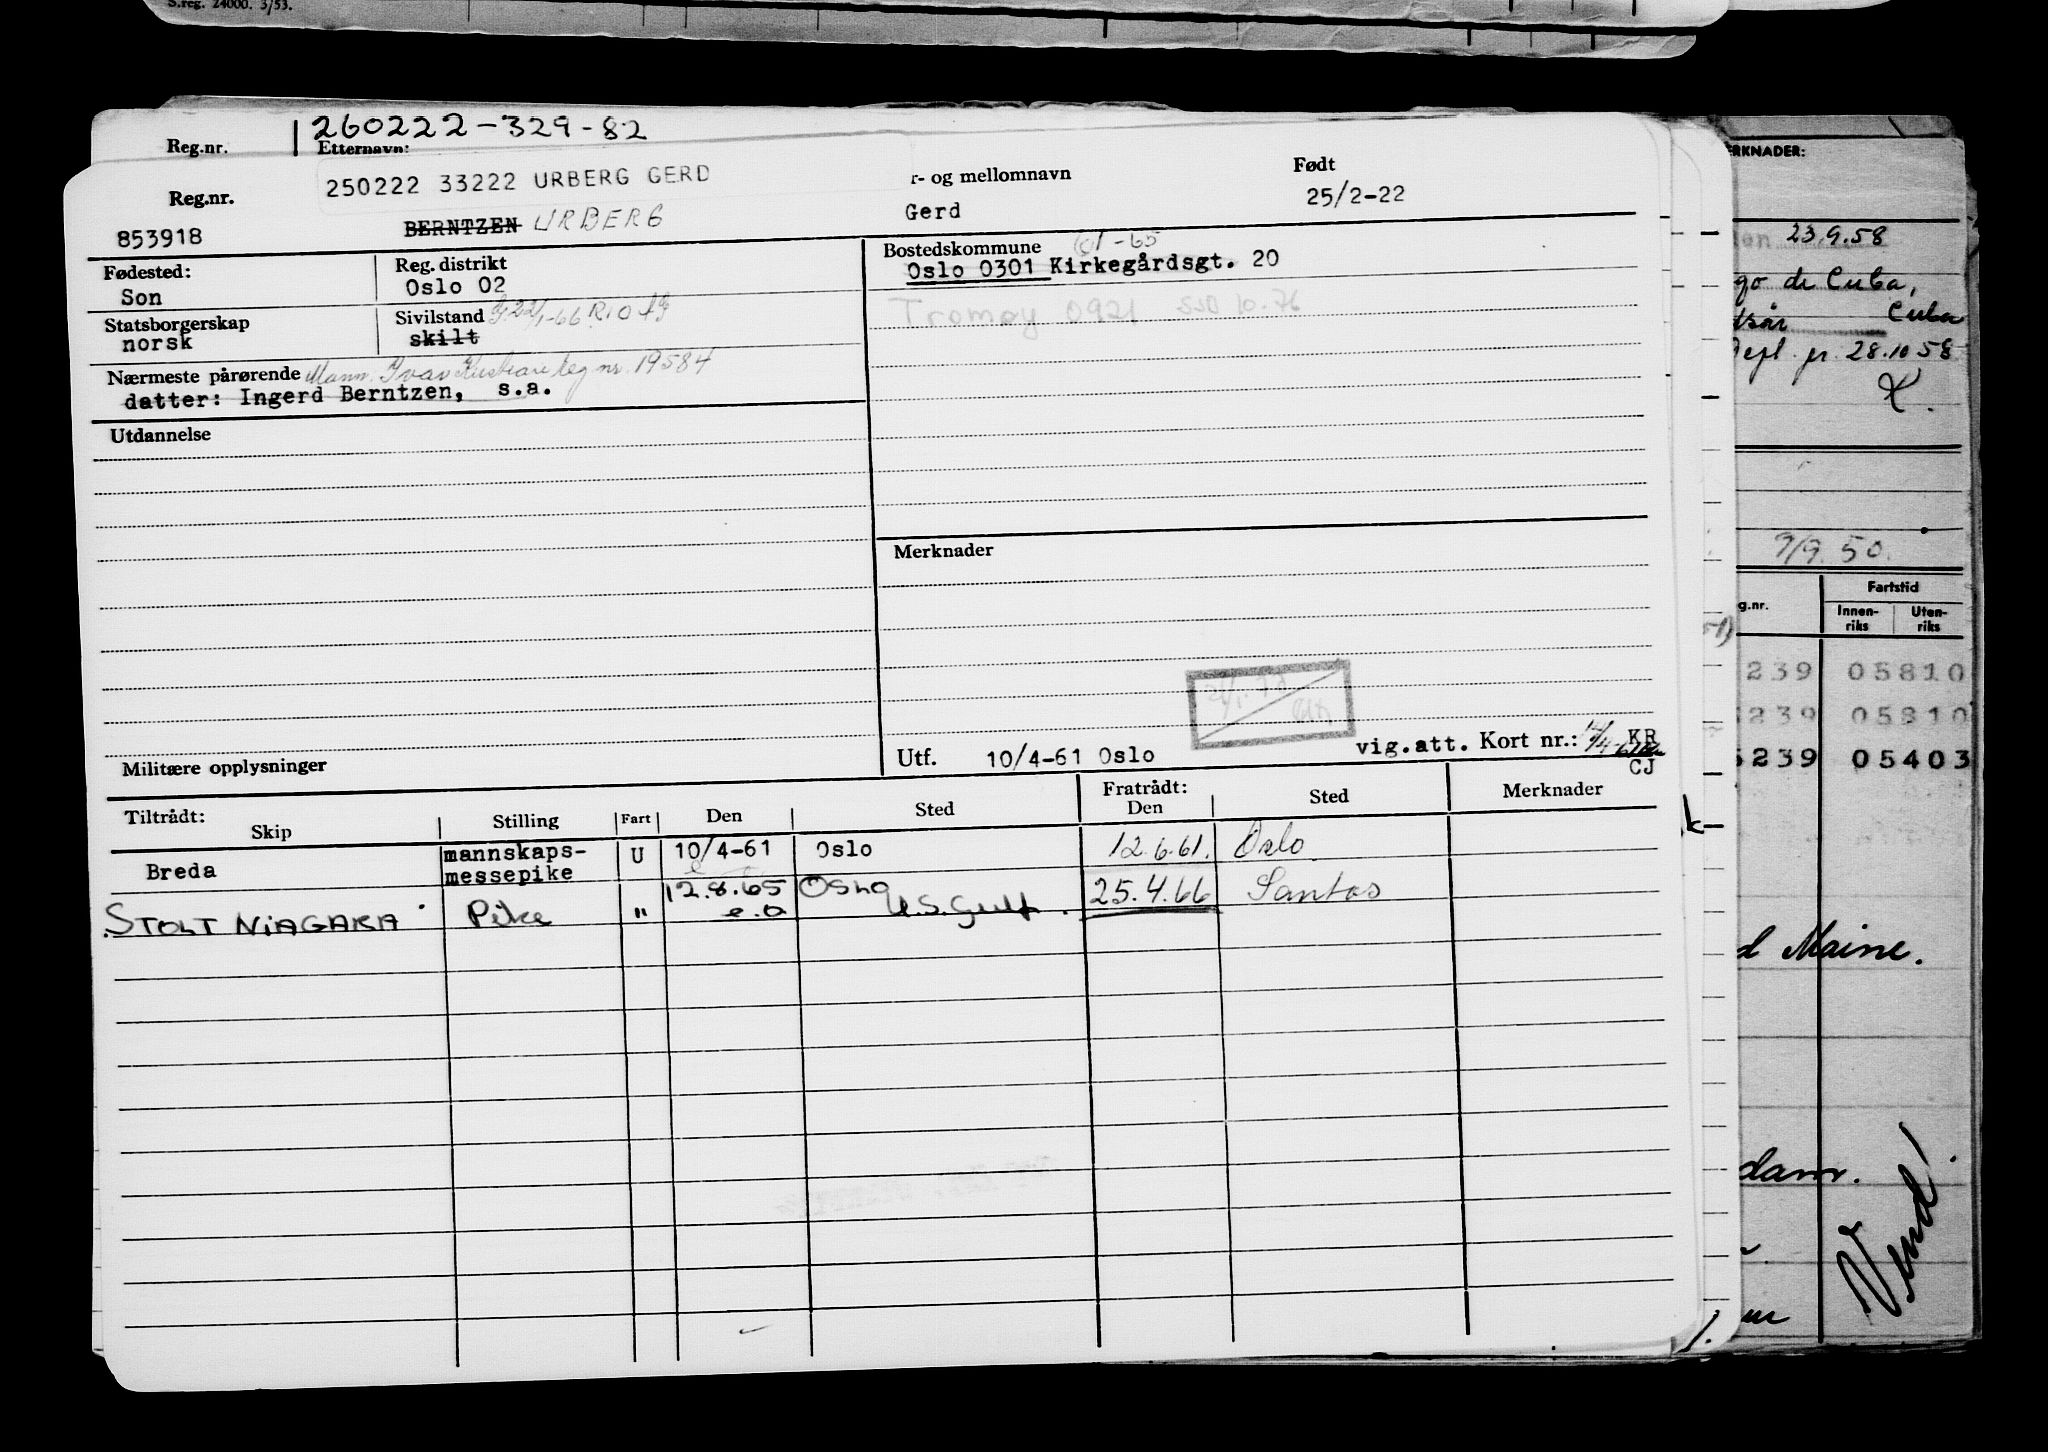 S.reg. 24000. 3/53.
Reg.nr. 260222-329-82
Etternavn:
Reg.nr. 250222 33222 URBERG GERD r- og mellomnavn Født
853918 BERNTZEN URBERG Gerd 25/2-22
Fødested: Reg. distrikt Bostedskommune -65
Son Oslo 02 Oslo 0301 Kirkegårdsgt. 20
Tromøy 0921 SSD 10.76
Statsborgerskap Sivilstand G 22/1-66 RIO
norsk skilt
Nærmeste pårørende Mann. Ivar reg nr. 19584
datter: Ingerd Berntzen, s.a.
Utdannelse
Merknader
Utf. 10/4-61 Oslo vig.att. Kort nr.: KR
CJ
Militære opplysninger
Tiltrådt: Fratrådt:
Skip Stilling Fart Den Sted Den Sted Merknader
Breda mannskaps-messepike U 10/4-61 Oslo 12.6.61. Oslo
STOLT NIAGARA Pike " 12.8.65 e.o OSLO U.S. Gulf. 25.4.66 Santos
RKNADER:
23.9.58
go de Cuba,
Cuba
pr. 28.10 58
9/9.50.
g.nr. Fartstid
Innen-riks Uten-riks
239 05810
239 05810
239 05403
d Maine.
dam.
Vend!